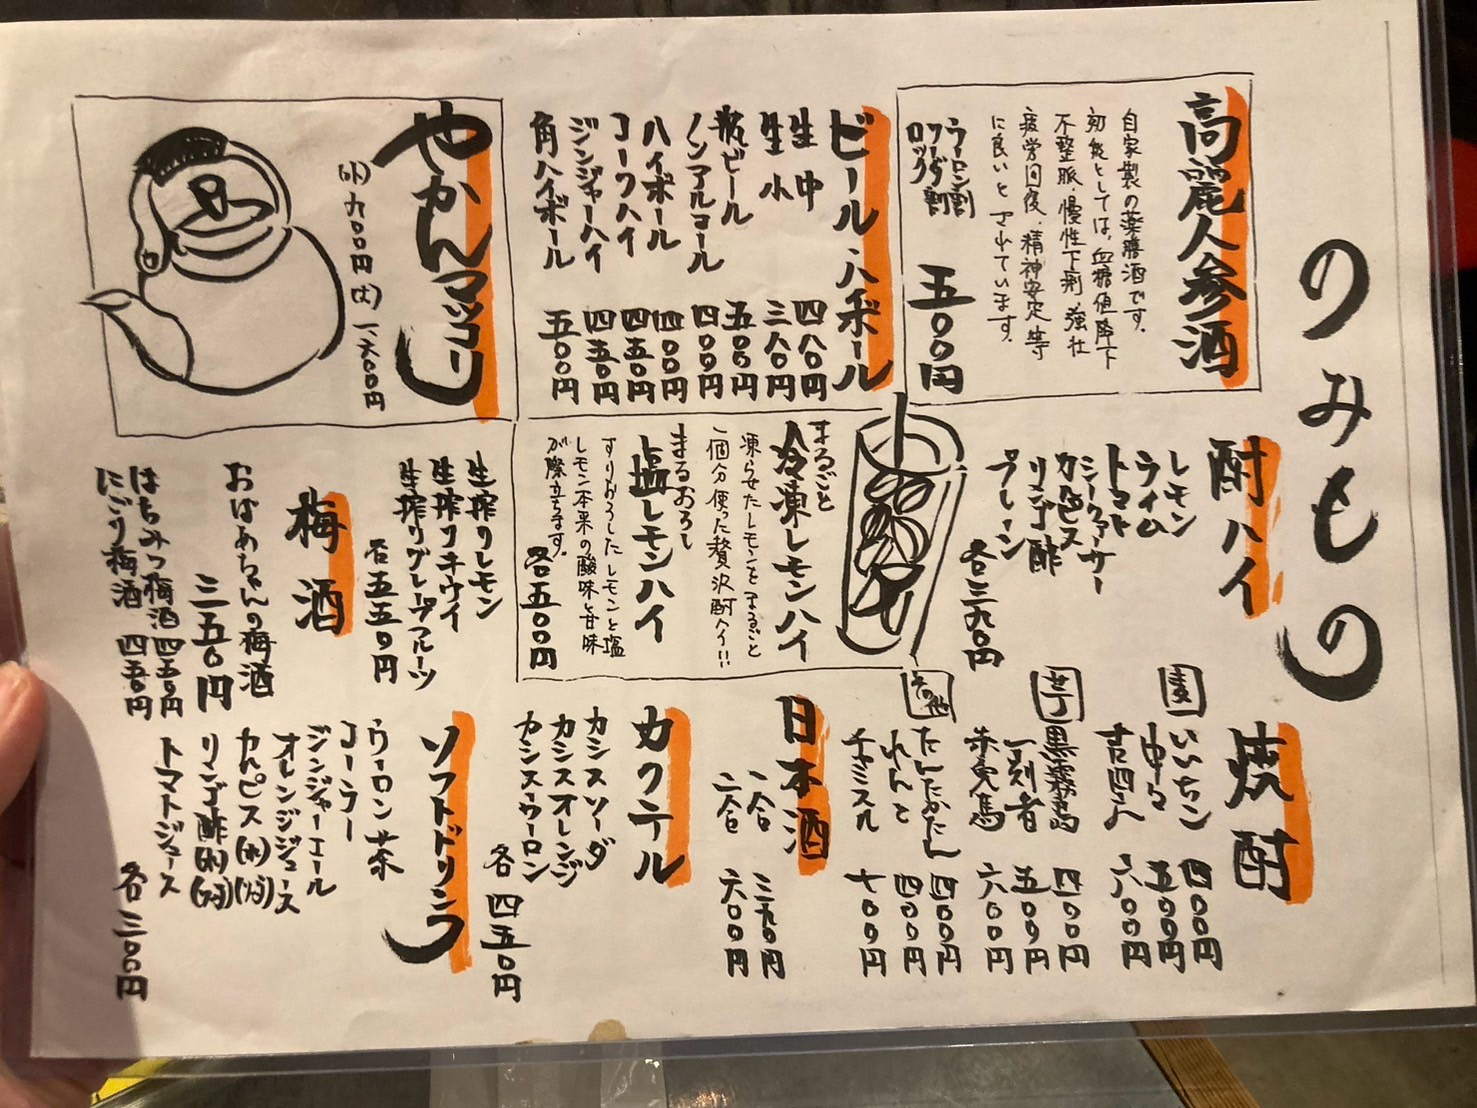 のみもの
高麗人参酒
自家製の薬膳酒です。
効能としては、血糖値降下
不整脈・慢性下痢・強壮
疲労回復、精神安定等
に良いとされています。
ウーロン割
ソーダ割
ロック
五〇〇円
ビール・ハイボール
生中 四八〇円
生小 三八〇円
瓶ビール 五〇〇円
ノンアルコール 四〇〇円
ハイボール 四〇〇円
コークハイ 四五〇円
ジンジャーハイ 四五〇円
角ハイボール 五〇〇円
やかんマッコリ
(小) 九〇〇円 (大) 一、六〇〇円
酎ハイ
レモン
ライム
トマト
シークァーサー
カルピス
リンゴ酢
プレーン
各三九〇円
まるごと
冷凍レモンハイ
凍らせたレモンをまるごと
一個分使った贅沢酎ハイ!!
まるおろし
塩レモンハイ
すりおろしたレモンと塩
レモン本来の酸味と甘味
が際立ちます。
各五〇〇円
生搾りレモン
生搾りキウイ
生搾りグレープフルーツ
各五五〇円
梅酒
おばあちゃんの梅酒
三五〇円
はちみつ梅酒 四五〇円
にごり梅酒 四五〇円
焼酎
麦
いいちこ 四〇〇円
中々 五〇〇円
吉四六 六〇〇円
芋
黒霧島 四〇〇円
一刻者 五〇〇円
赤兎馬 六〇〇円
その他
たんたかたん 四〇〇円
れんと 四〇〇円
チャミスル 七〇〇円
日本酒
一合 三九〇円
二合 六〇〇円
カクテル
カシスソーダ
カシスオレンジ
カシスウーロン
各四五〇円
ソフトドリンク
ウーロン茶
コーラ
ジンジャーエール
オレンジジュース
カルピス(水)(ソーダ)
リンゴ酢(水)(ソーダ)
トマトジュース
各三〇〇円